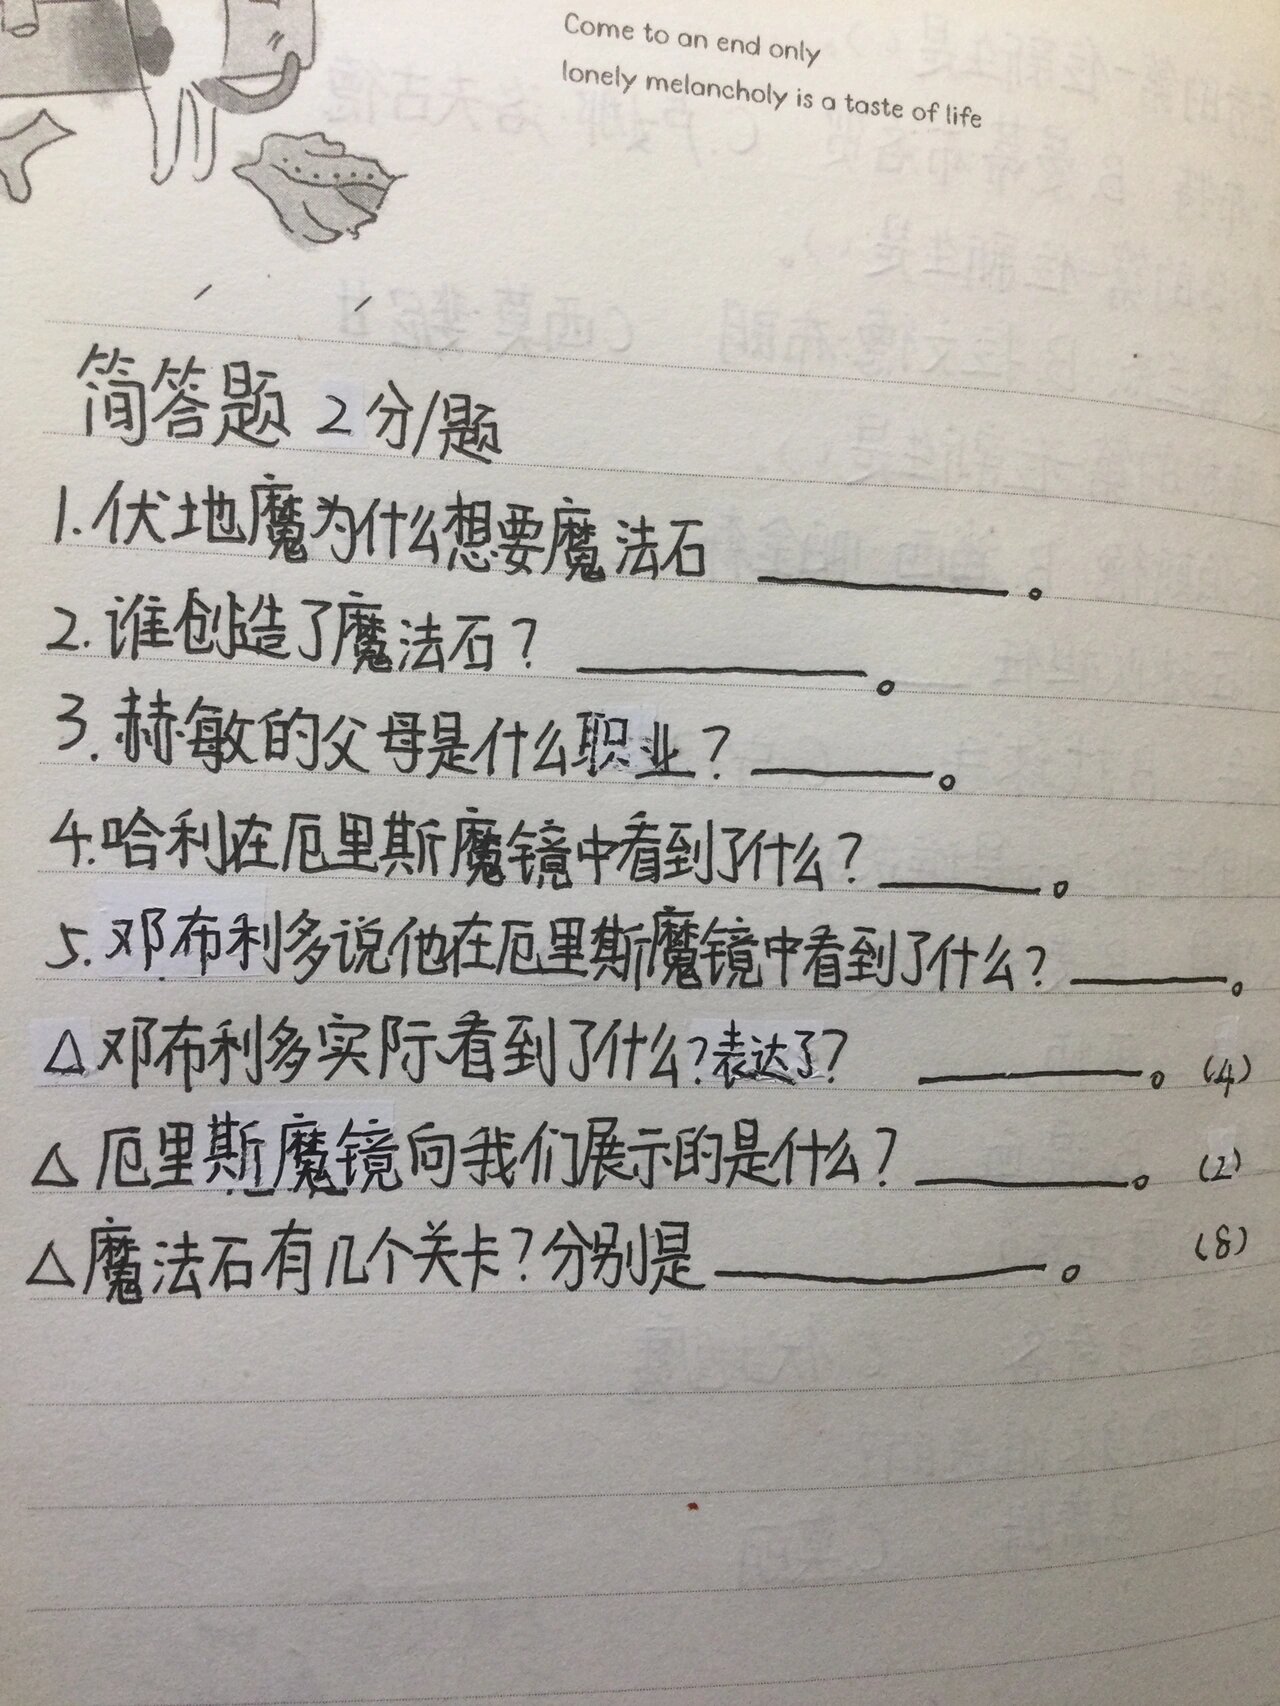 Come to an end only
lonely melancholy is a taste of life
简答题 2分/题
1.伏地魔为什么想要魔法石 ________。
2.谁创造了魔法石? ________。
3.赫敏的父母是什么职业? ________。
4.哈利在厄里斯魔镜中看到了什么? ________。
5.邓布利多说他在厄里斯魔镜中看到了什么? ________。
△邓布利多实际看到了什么?表达了? ________。(4)
△厄里斯魔镜向我们展示的是什么? ________。(2)
△魔法石有几个关卡?分别是________。(8)